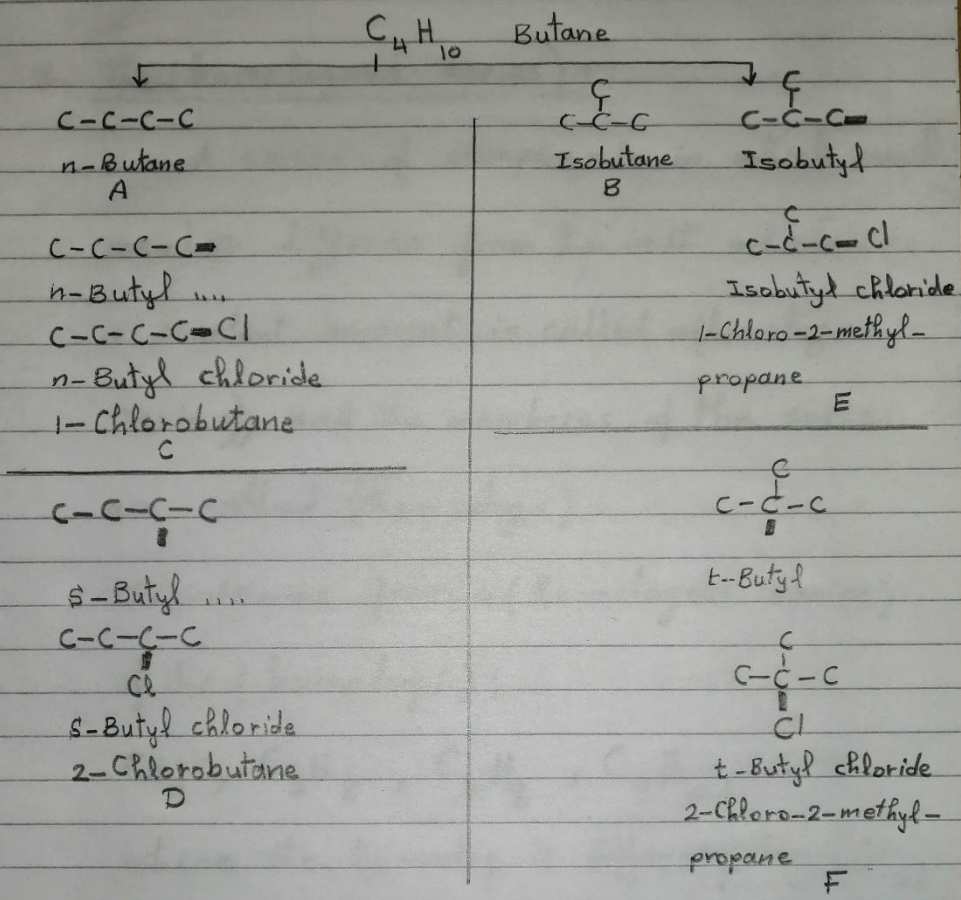 C4H10 Butane
C-C-C-C
n-Butane
A
C-C-C-C-
n-Butyl ....
C-C-C-C-Cl
n-Butyl chloride
1-Chlorobutane
C
C-C-C-C
s-Butyl ....
C-C-C-C
Cl
s-Butyl chloride
2-Chlorobutane
D
C
C-C-C
Isobutane
B
C
C-C-C-
Isobutyl
C
C-C-C-Cl
Isobutyl chloride
1-Chloro-2-methyl-
propane
E
C
C-C-C
t-Butyl
C
C-C-C
Cl
t-Butyl chloride
2-Chloro-2-methyl-
propane
F